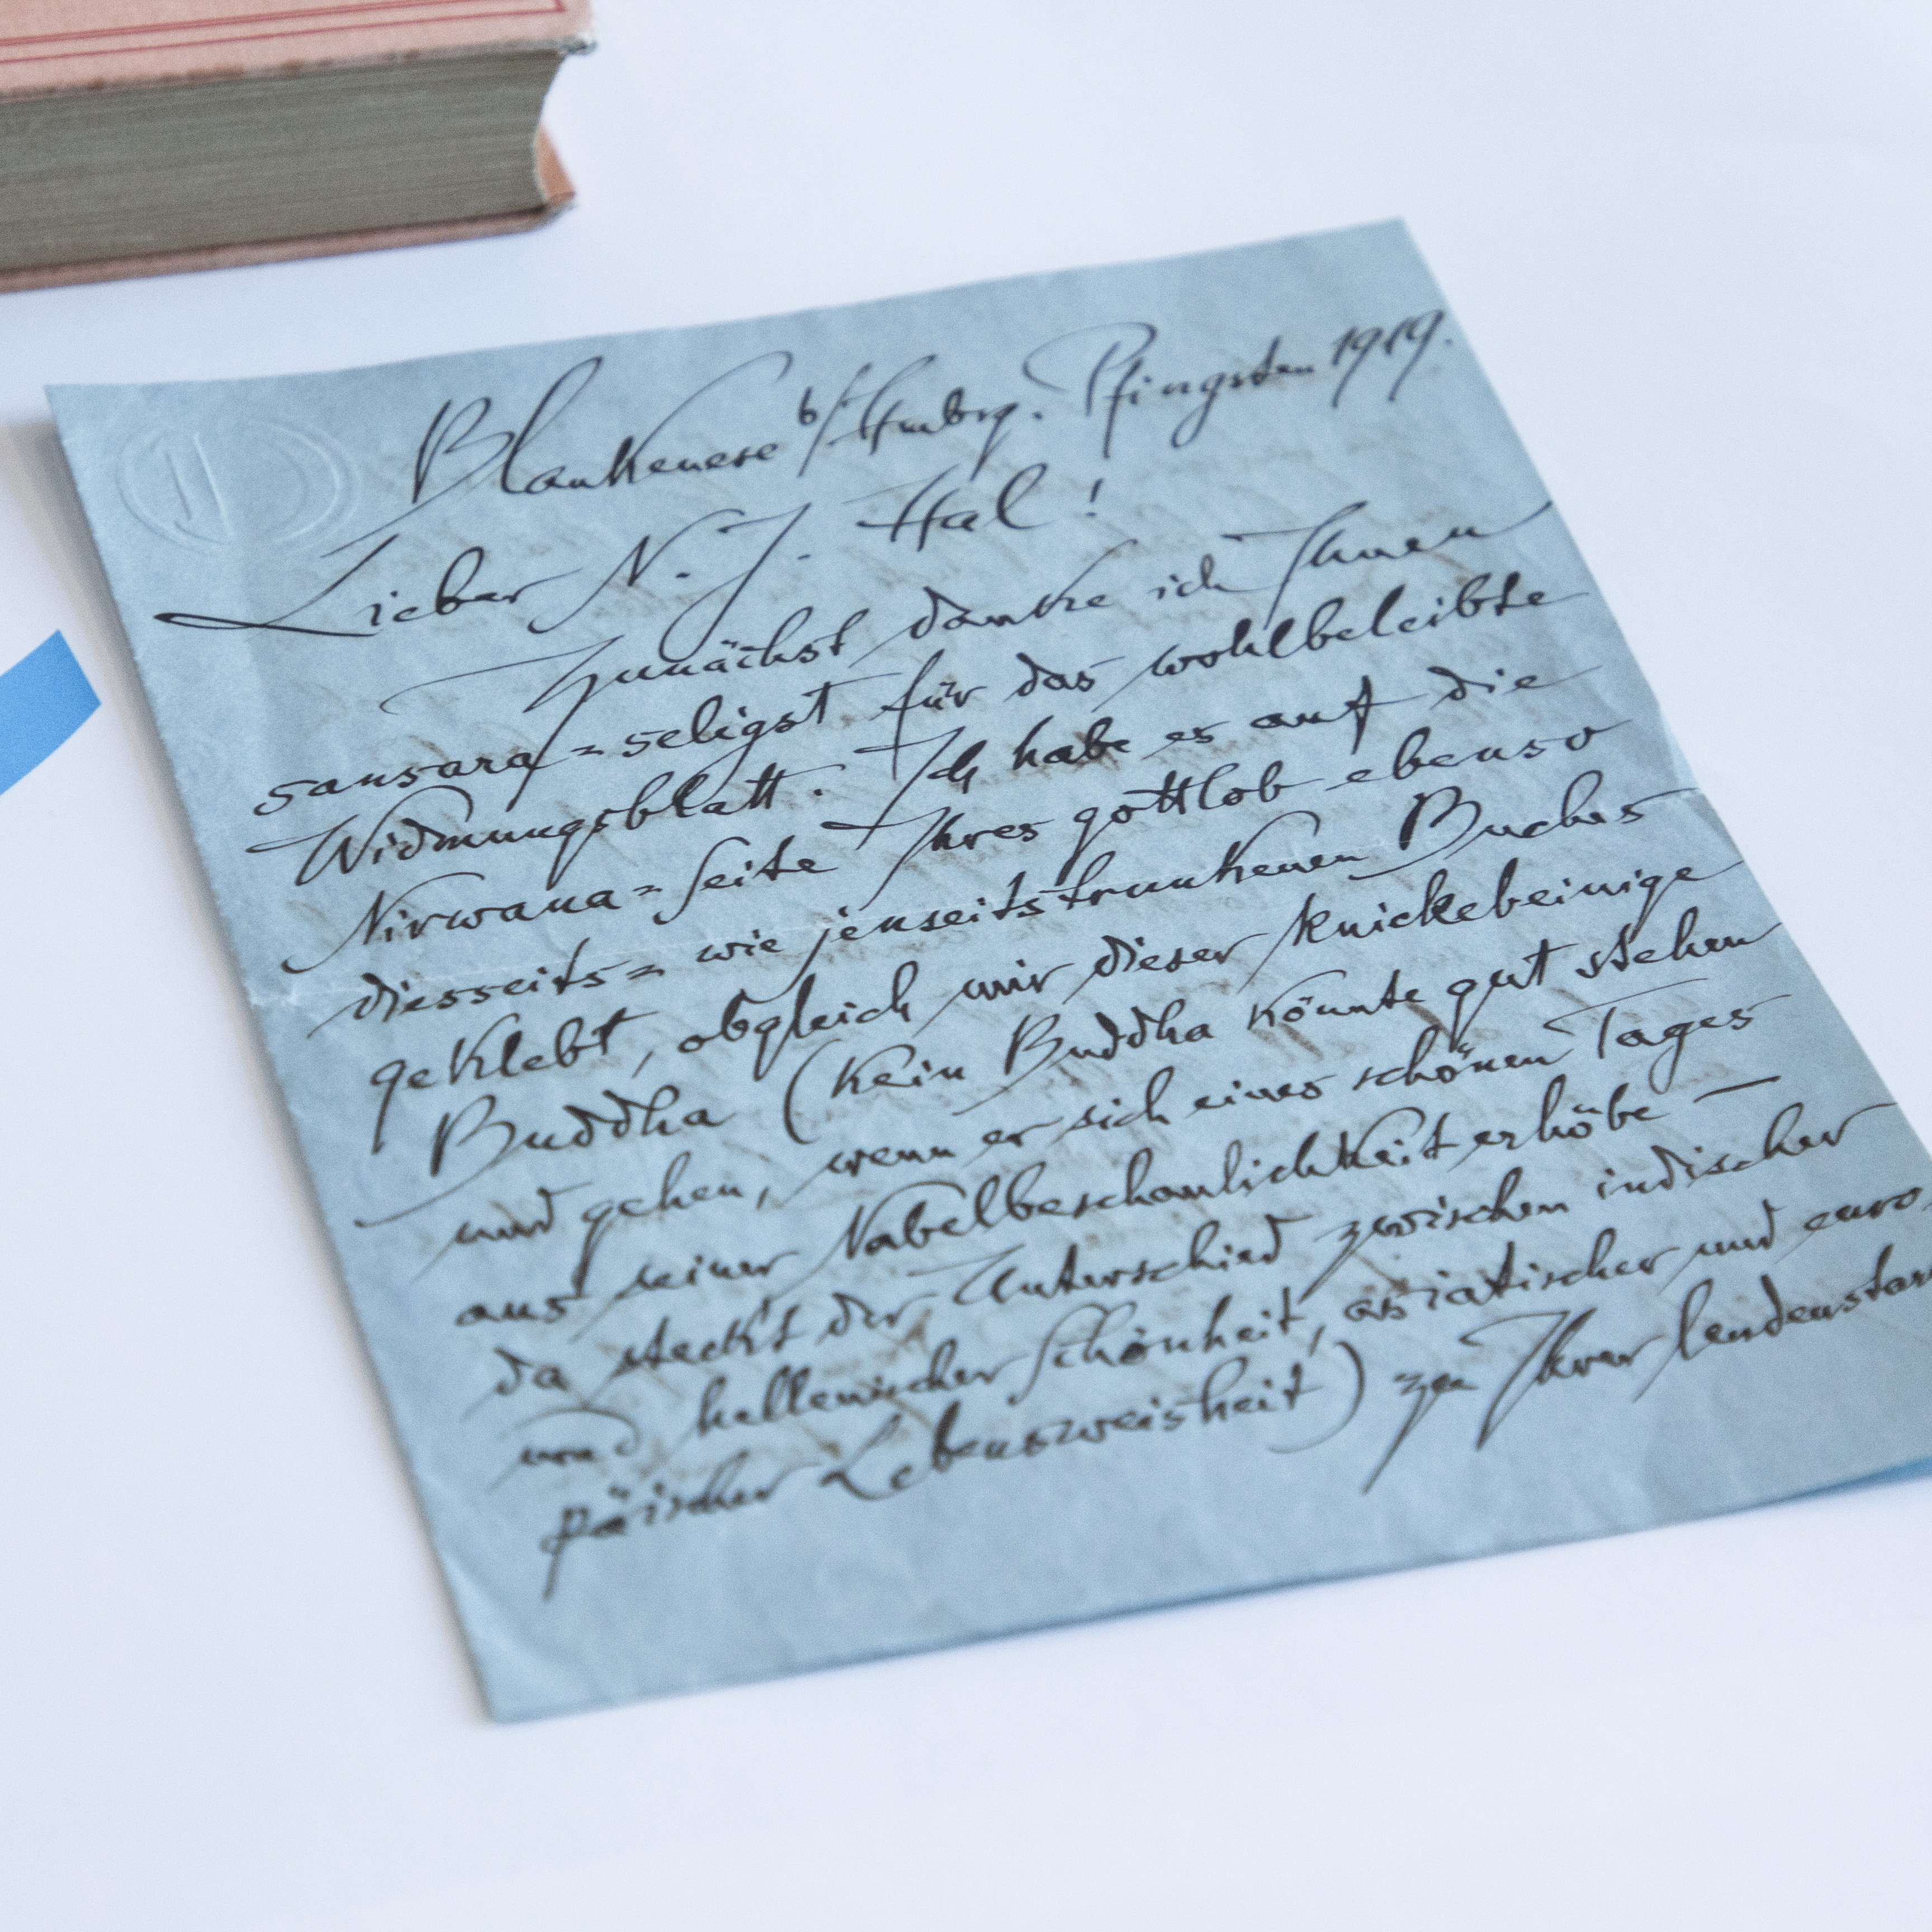 Blankenese b/Hmbrg. Pfingsten 1919.
Lieber N. J. Hal!
Zunächst danke ich Ihnen
sansara=seligst für das wohlbeleibte
Widmungsblatt. Ich habe es auf die
Nirwana=Seite Ihres gottlob ebenso
diesseits= wie jenseitstrunkenen Buches
geklebt, obgleich mir dieser knickebeinige
Buddha (kein Buddha könnte gut stehen
und gehen, wenn er sich eines schönen Tages
aus seiner Nabelbeschaulichkeit erhöbe —
da steckt der Unterschied zwischen indischer
und hellenischer Schönheit, asiatischer und euro-
päischer Lebensweisheit) zu Ihrer